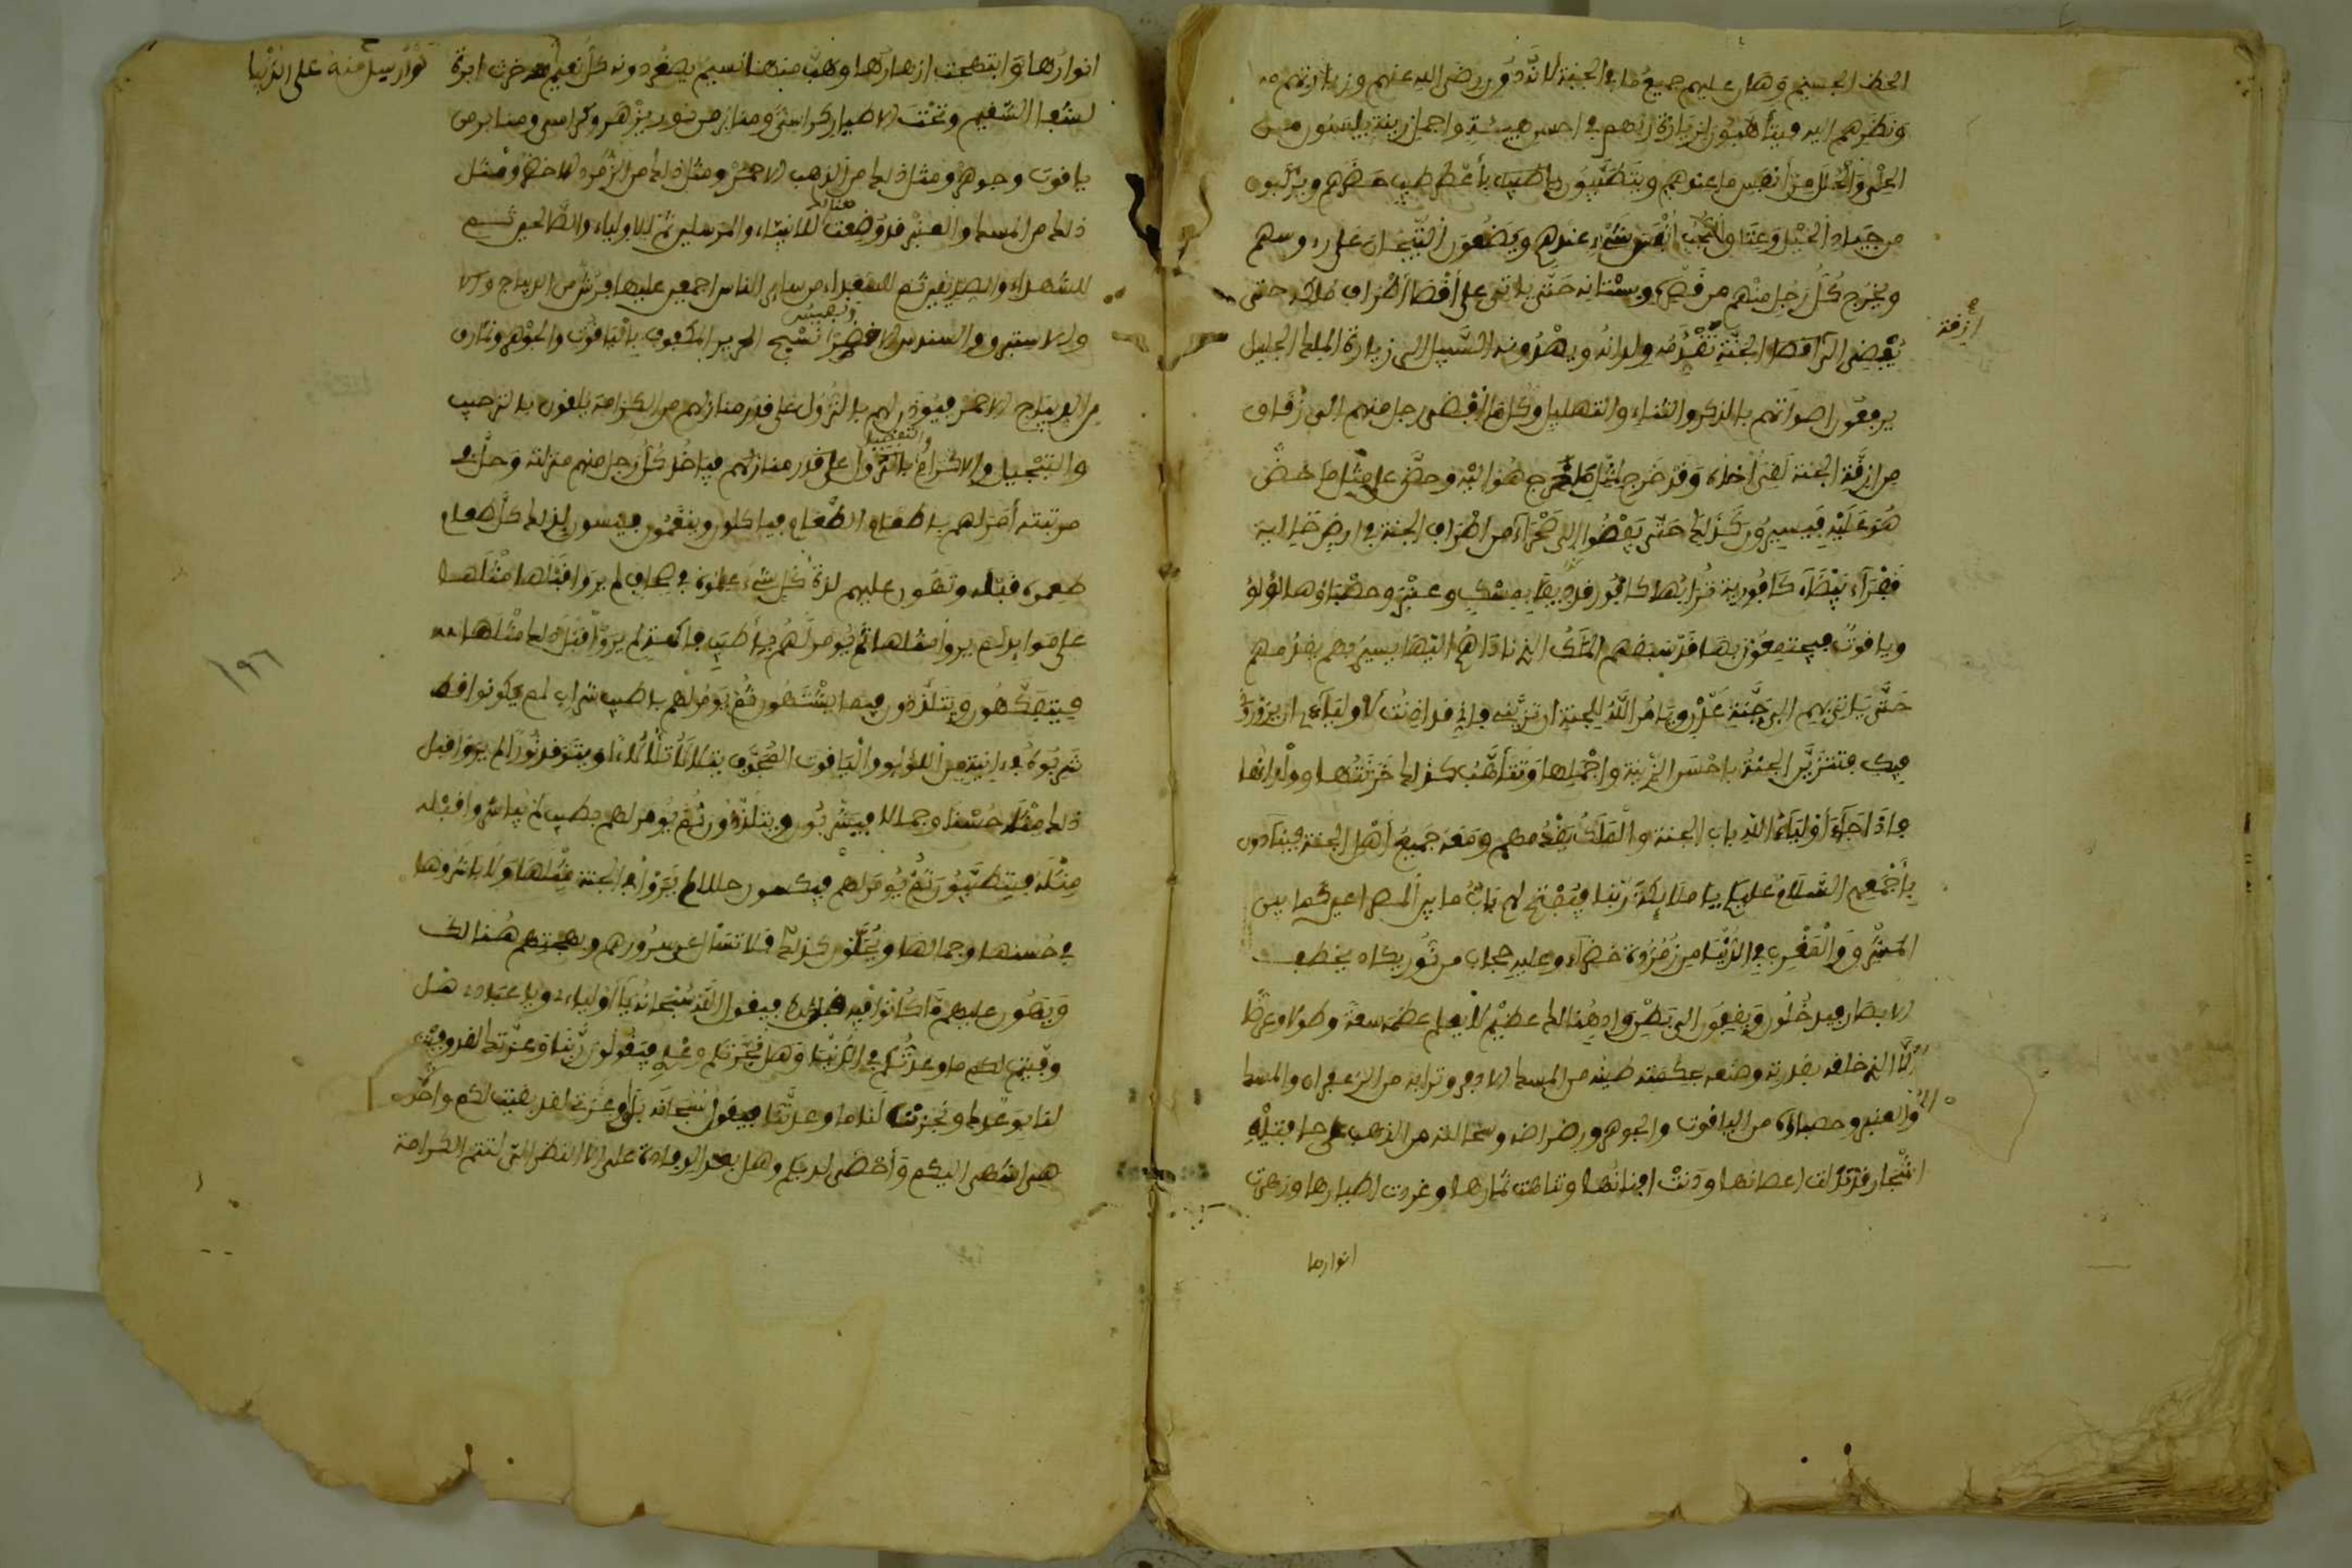 الحظ الجسيم وهان عليهم جميع ما في الجنة لا ندور رضى الله عنهم وزيارتهم
ونظرهم اليه فيتأهبون لزيارة ربهم في احسن هيئة واجمل زينة يلبسون من
الحلي والحلل من أنفس ما عندهم ويتطيبون باطيب بأعطر طيب حضرهم ويركبون
من جياد الخيل وعتاق النجب أنفس شيء عندهم ويضعون التيجان على رءوسهم
ويخرج كل رجل منهم من قصره وبستانه حتى ياتي على أقصا أطراف ملكه حتى
يفضي الى الجنة تقدمه ولدانه ويهدونه السبيل الى زيارة الملك الجليل
أزقة
يرفعون اصواتهم بالذكر والثناء والتهليل وكلما أفضى رجل منهم الى زقاق
من ازقة الجنة لقى أخاه وقد خرج لمثل ما خرج هو اليه وحض على مثل ما حض
هو عليه فيسيرون كذلك حتى يفضوا الى صحراء من اطراف الجنة في ارض خالية
قفراء بيضاء كافورية ترابها كافور قد بمسك وعنبر وحصباؤها لؤلؤ
وياقوت فيجتمعون بها قد سبقهم الملك الذي ناداهم اليها يسير بهم يقدمهم
حتى ياتي بهم الى جنة عدن ويامر الله الجنة ان تزيني فاني قد اذنت لأوليائي ان يزوروني
فيك فتتزين الجنة باحسن الزينة واجملها وتتأهب كذلك خزنتها وولدانها
فاذا جاء أولياء الله باب الجنة والملك يقدمهم ومعه جميع أهل الجنة فينادون
بأجمعهم السلام عليكم يا ملائكة ربنا فيفتح لهم باب ما بين المصراعين كما بين
المشرق والمغرب في الدنيا من زمردة خضراء وعليه حجاب من نور يكاد يخطف
الابصار فيدخلون ويفيضون الى بطن واد هنالك عظيم لا يعلم عظمه سعة وطولا وعرضا
إلا الذي خلقه بقدرته وصنعه بحكمته طينه من المسك الاذفر وترابه من الزعفران والمسك
والعنبر وحصباؤه من الياقوت والجوهر ورضراضه من الذهب على حافتيه
اشجار قد تدلت اغصانها ودنت افنانها وتناهت ثمارها وغردت اطيارها وزهرت
انوارها
انوارها وابتهجت ازهارها وهب منها نسيم يصغر دونه كل نعيم قدر خرت ابرة
نوار سيل منه على الدنيا
لشفا السقيم وتحت الاطيار كراسي ومنابر من نور يزهر وكراسي ومنابر من
ياقوت وجوهر ومثل ذلك من الذهب الاحمر ومثل ذلك من الزمرد الاخضر ومثل
ذلك من المسك والعنبر قد وضعت هنالك للانبياء والمرسلين ثم للاولياء والصالحين ثم
للشهداء والصديقين ثم للسعداء من سائر الناس اجمعين عليها فرش من الديباج
والاستبرق والسندس الاخضر ونسج الحرير المكفوف بالياقوت والجوهر ونمارق
من الديباج الاحمر فيؤذن لهم بالنزول على قدر منازلهم من الكرامة يلقون بالترحيب
والتبجيل والاكرام والتفضيل على قدر منازلهم فياخذ كل رجل منهم منزلته وحل في
مرتبته أمر لهم باطعام الطعام فياكلون وينعمون فينسون لذلك كل طعام
طعموه قبله وتهون عليهم لذة كل شيء علموه في صحاف لم يروا قبلها مثلها
على موايد لم يروا مثلها ثم يومر لهم باطيب فاكهة لم يروا قبل ذلك مثلها
فيتفكهون ويتلذذون فيما يشتهون ثم يومر لهم باطيب شراب لم يكونوا قط
شربوه في انية من اللؤلؤ والياقوت يتلألأ تلألئا ويتوقد نورا لم يروا قبل
ذلك مثله حسنا وجمالا فيشربون ويتلذذون ثم يومر لهم بطيب لم يباشروا قبله
مثله فيتطيبون ثم يومر لهم فيكسون حللا لم يروا في الجنة مثلها ولا باشروها
في حسنها وجمالها ويحلون كذلك فلا تسأل عن سرورهم وبهجتهم هنالك
ويهون عليهم ما كانوا فيه قبل ذلك فيقول الله سبحانه يا أوليائي ويا عبادي هل
وفيت لكم ما وعدتكم في الدنيا وهل نجزتكم وعدي فيقولون ربنا وعزتك لقد وفيت
لنا بوعدك ونجزت لنا ما وعدتنا فيقول سبحانه بلى وعزتي لقد بقيت لكم واحدة
هي اشهى اليكم وأحضى لديكم وهل بعد الوفادة على الا النظر التى تتم الكرامة
١٩٦